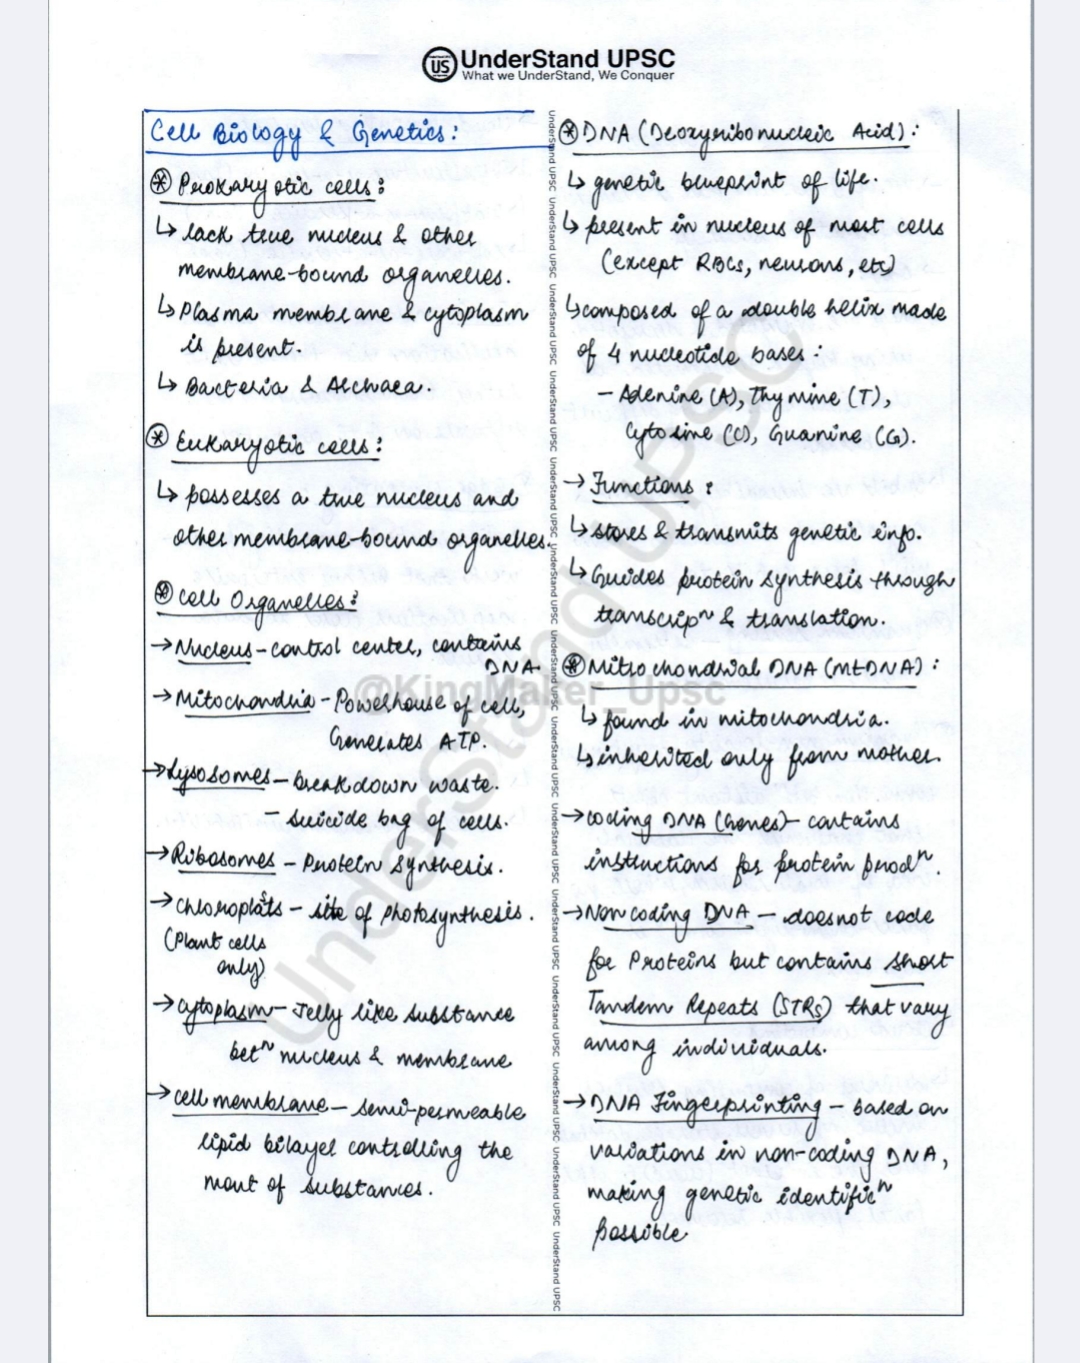 US UnderStand UPSC
What we UnderStand, We Conquer
Cell Biology & Genetics:
Prokaryotic cells:
↳ lack true nucleus & other
membrane-bound organelles.
↳ Plasma membrane & cytoplasm
is present.
↳ Bacteria & Archaea.
Eukaryotic cells:
↳ possesses a true nucleus and
other membrane-bound organelles.
Cell Organelles:
→ Nucleus - control center, contains
DNA.
→ Mitochondria - Powerhouse of cell,
Generates ATP.
→ Lysosomes - breakdown waste.
- suicide bag of cells.
→ Ribosomes - Protein synthesis.
→ chloroplats - site of photosynthesis.
(Plant cells
only)
→ cytoplasm - Jelly like substance
betⁿ nucleus & membrane
→ cell membrane - semi-permeable
lipid bilayer controlling the
mont of substances.
DNA (Deoxyribonucleic Acid):
↳ genetic blueprint of life.
↳ present in nucleus of most cells
(except RBCs, neurons, etc)
↳ composed of a double helix made
of 4 nucleotide bases:
- Adenine (A), Thymine (T),
Cytosine (C), Guanine (G).
→ Functions:
↳ stores & transmits genetic info.
↳ Guides protein synthesis through
transcripⁿ & translation.
Mitochondrial DNA (mtDNA):
↳ found in mitochondria.
↳ inherited only from mother.
→ coding DNA (Genes) - contains
instructions for protein prodⁿ.
→ Non coding DNA - doesnot code
for Proteins but contains short
Tandem Repeats (STRs) that vary
among individuals.
→ DNA Fingerprinting - based on
variations in non-coding DNA,
making genetic identificⁿ
possible
UnderStand UPSC UnderStand UPSC UnderStand UPSC UnderStand UPSC UnderStand UPSC UnderStand UPSC UnderStand UPSC UnderStand UPSC UnderStand UPSC UnderStand UPSC UnderStand UPSC UnderStand UPSC UnderStand UPSC UnderStand UPSC
UnderStand UPSC
@KingMaker_Upsc